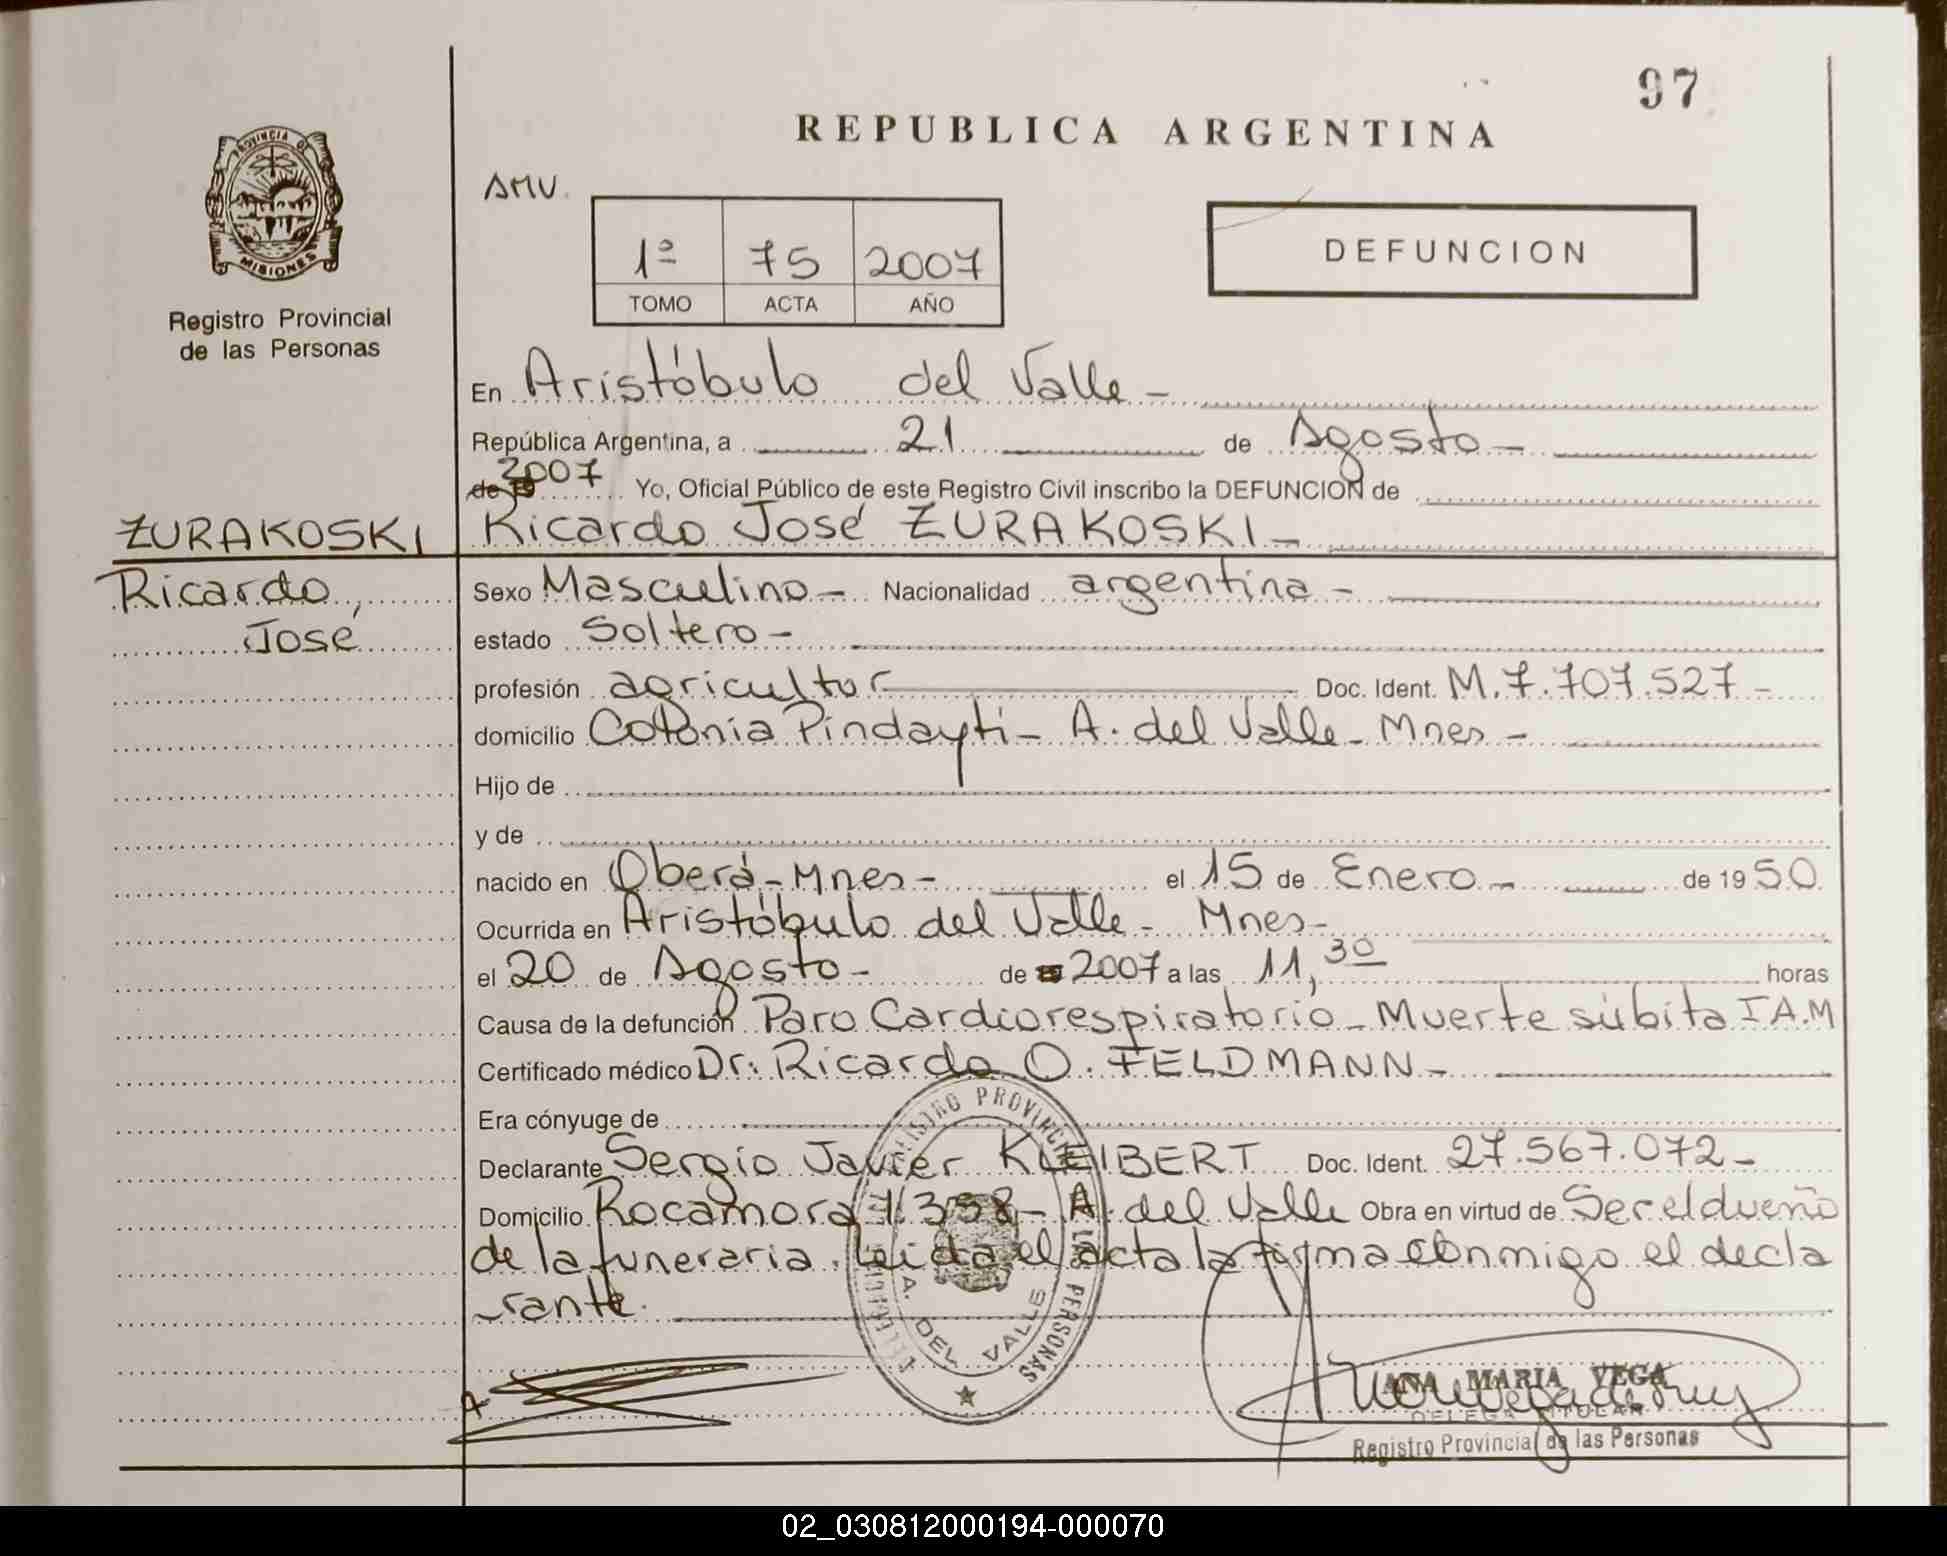 97
REPUBLICA ARGENTINA
AMV.
PROVINCIA DE
MISIONES
Registro Provincial
de las Personas
1º 75 2007
TOMO ACTA AÑO
DEFUNCION
En Aristóbulo del Valle -
República Argentina, a 21 de Agosto -
de 19 2007 Yo, Oficial Público de este Registro Civil inscribo la DEFUNCION de
ZURAKOSKI Ricardo José ZURAKOSKI -
Ricardo, Sexo Masculino - Nacionalidad argentina -
José estado Soltero -
profesión agricultor Doc. Ident. M.7.707.527 -
domicilio Colonia Pindayti - A. del Valle - Mnes -
Hijo de
y de
nacido en Oberá - Mnes - el 15 de Enero - de 1950
Ocurrida en Aristóbulo del Valle - Mnes -
el 20 de Agosto - de 19 2007 a las 11,30 horas
Causa de la defunción Paro Cardiorespiratorio - Muerte súbita I A.M
Certificado médico Dr: Ricardo O. FELDMANN -
Era cónyuge de
Declarante Sergio Javier KLEIBERT Doc. Ident. 27.567.072 -
Domicilio Rocamora 1338 - A. del Valle Obra en virtud de Ser el dueño
de la funeraria. Leida el acta la firma conmigo el decla
rante.
REGISTRO PROVINCIAL DE LAS PERSONAS
A. DEL VALLE
ANA MARIA VEGA
DELEGA TITULAR
Registro Provincial de las Personas
02_030812000194-000070